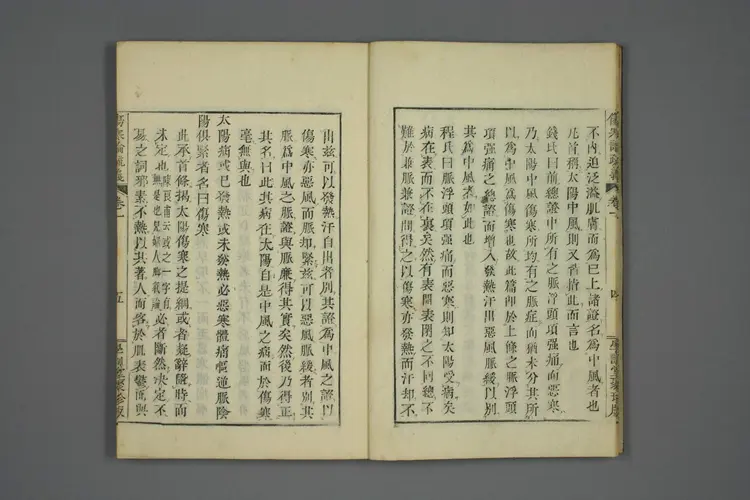 不內迫泛溢肌膚而為已上諸證名為中風者也
凡首稱太陽中風則又皆指此而言也
錢氏曰前總證中所有之脈浮頭項强痛而惡寒
乃太陽中風傷寒所均有之脈症尚猶未分其所
以為中風為傷寒也故此篇即於上條之脈浮頭
項强痛之總證而增入發熱汗出惡風脈緩以別
其為中風者如此也
程氏曰脈浮頭項强痛而惡寒則知太陽受病矣
病在表而不在裏矣然有表開表閉之不同總不
難於兼脈兼證間得之以傷寒亦發熱而汗却不
出茲可以發熱汗自出者別其證為中風之證以
傷寒亦惡風而脈却緊茲可以惡風脈緩者別其
脈為中風之脈證與脈廉得其實矣然後乃得正
其名曰此其病在太陽自是中風之病而於傷寒
毫無與也
太陽病或已發熱或未發熱必惡寒體痛嘔逆脈陰
陽俱緊者名曰傷寒
此承首條揭太陽傷寒之提綱或者疑辭隨時而
未定也 必者斷然決定不
易之詞邪素不熱以其著人而客於肌表鬱而與
傷寒論疏義 卷一 五
傷寒論疏義 卷一 四